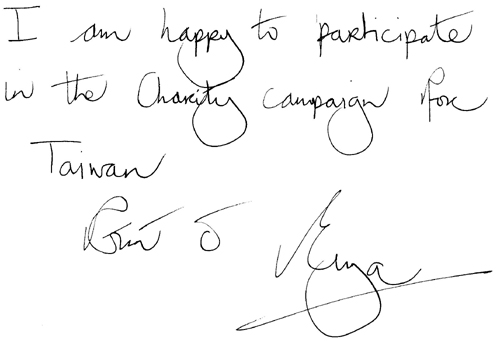 I am happy to participate
in the Charity campaign for
Taiwan
Enya